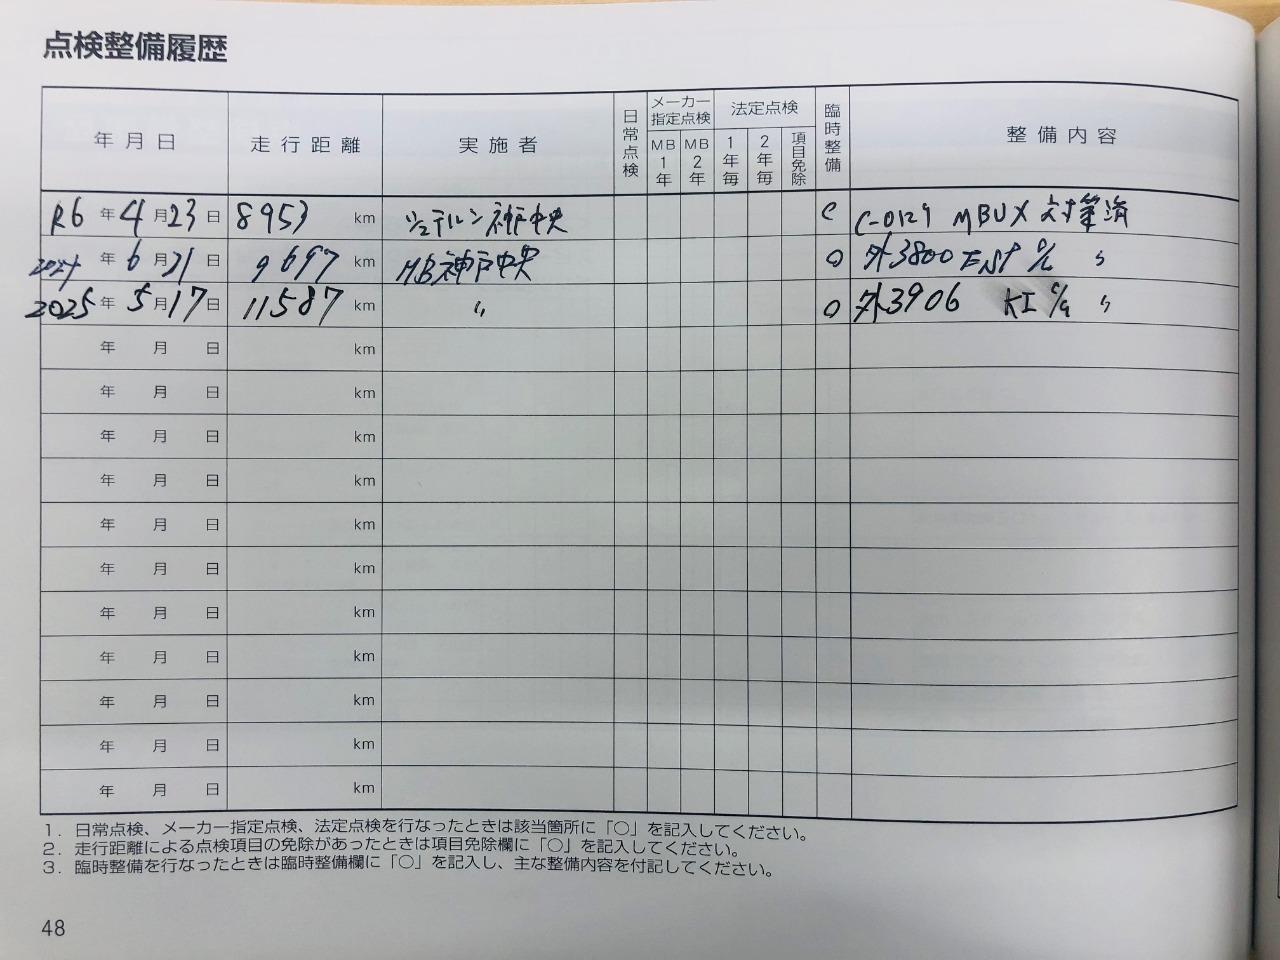 点検整備履歴
年月日 走行距離 実施者 日常点検 メーカー指定点検 MB1年 MB2年 法定点検 1年毎 2年毎 項目免除 臨時整備 整備内容
R6年4月23日 8953 km シュテルン神戸中央 ○ C-0129 MBUX 対策済
2024年6月21日 9697 km MB神戸中央 ○ 外3800 〃
2025年5月17日 11587 km 〃 ○ 外3906 KI 〃
年 月 日 km
年 月 日 km
年 月 日 km
年 月 日 km
年 月 日 km
年 月 日 km
年 月 日 km
年 月 日 km
年 月 日 km
年 月 日 km
年 月 日 km
1. 日常点検、メーカー指定点検、法定点検を行なったときは該当箇所に「○」を記入してください。
2. 走行距離による点検項目の免除があったときは項目免除欄に「○」を記入してください。
3. 臨時整備を行なったときは臨時整備欄に「○」を記入し、主な整備内容を付記してください。
48